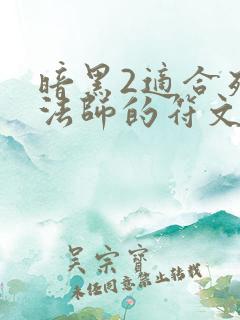 暗黑2適合死
法師的符文
吴宗寶
未经同意禁止转载